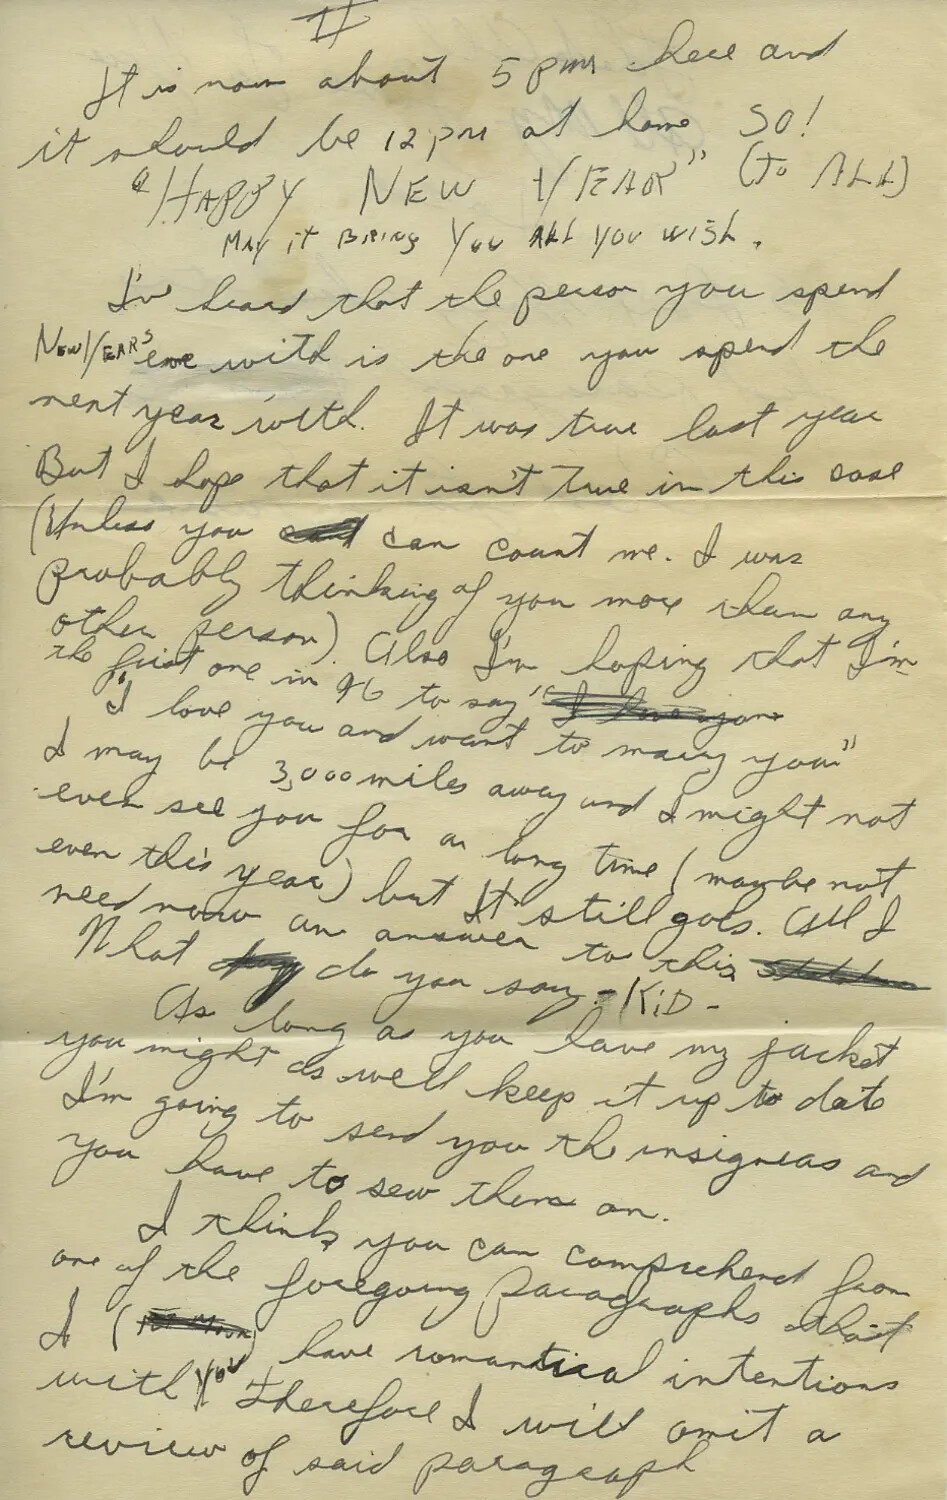 II
It is now about 5 pm here and
it should be 12 pm at home SO!
"HAPPY NEW YEAR" (TO ALL)
MAY IT BRING YOU ALL YOU WISH.
I've heard that the person you spend
NEW YEARS eve with is the one you spend the
next year with. It was true last year
But I hope that it isn't True in this case
(Unless you can count me. I was
probably thinking of you more than any
other person). Also I'm hoping that I'm
the first one in 46 to say "
"I love you and want to marry you"
I may be 3,000 miles away and I might not
even see you for a long time (maybe not
even this year) but It still gols. All I
need now an answer to this
What do you say - KID -
As long as you have my jacket
you might as well keep it up to date
I'm going to send you the insignias and
you have to sew them on.
I think you can comprehend from
one of the foregoing paragraphs that
I ( ) have romantical intentions
with YOU Therefore I will omit a
review of said paragraph